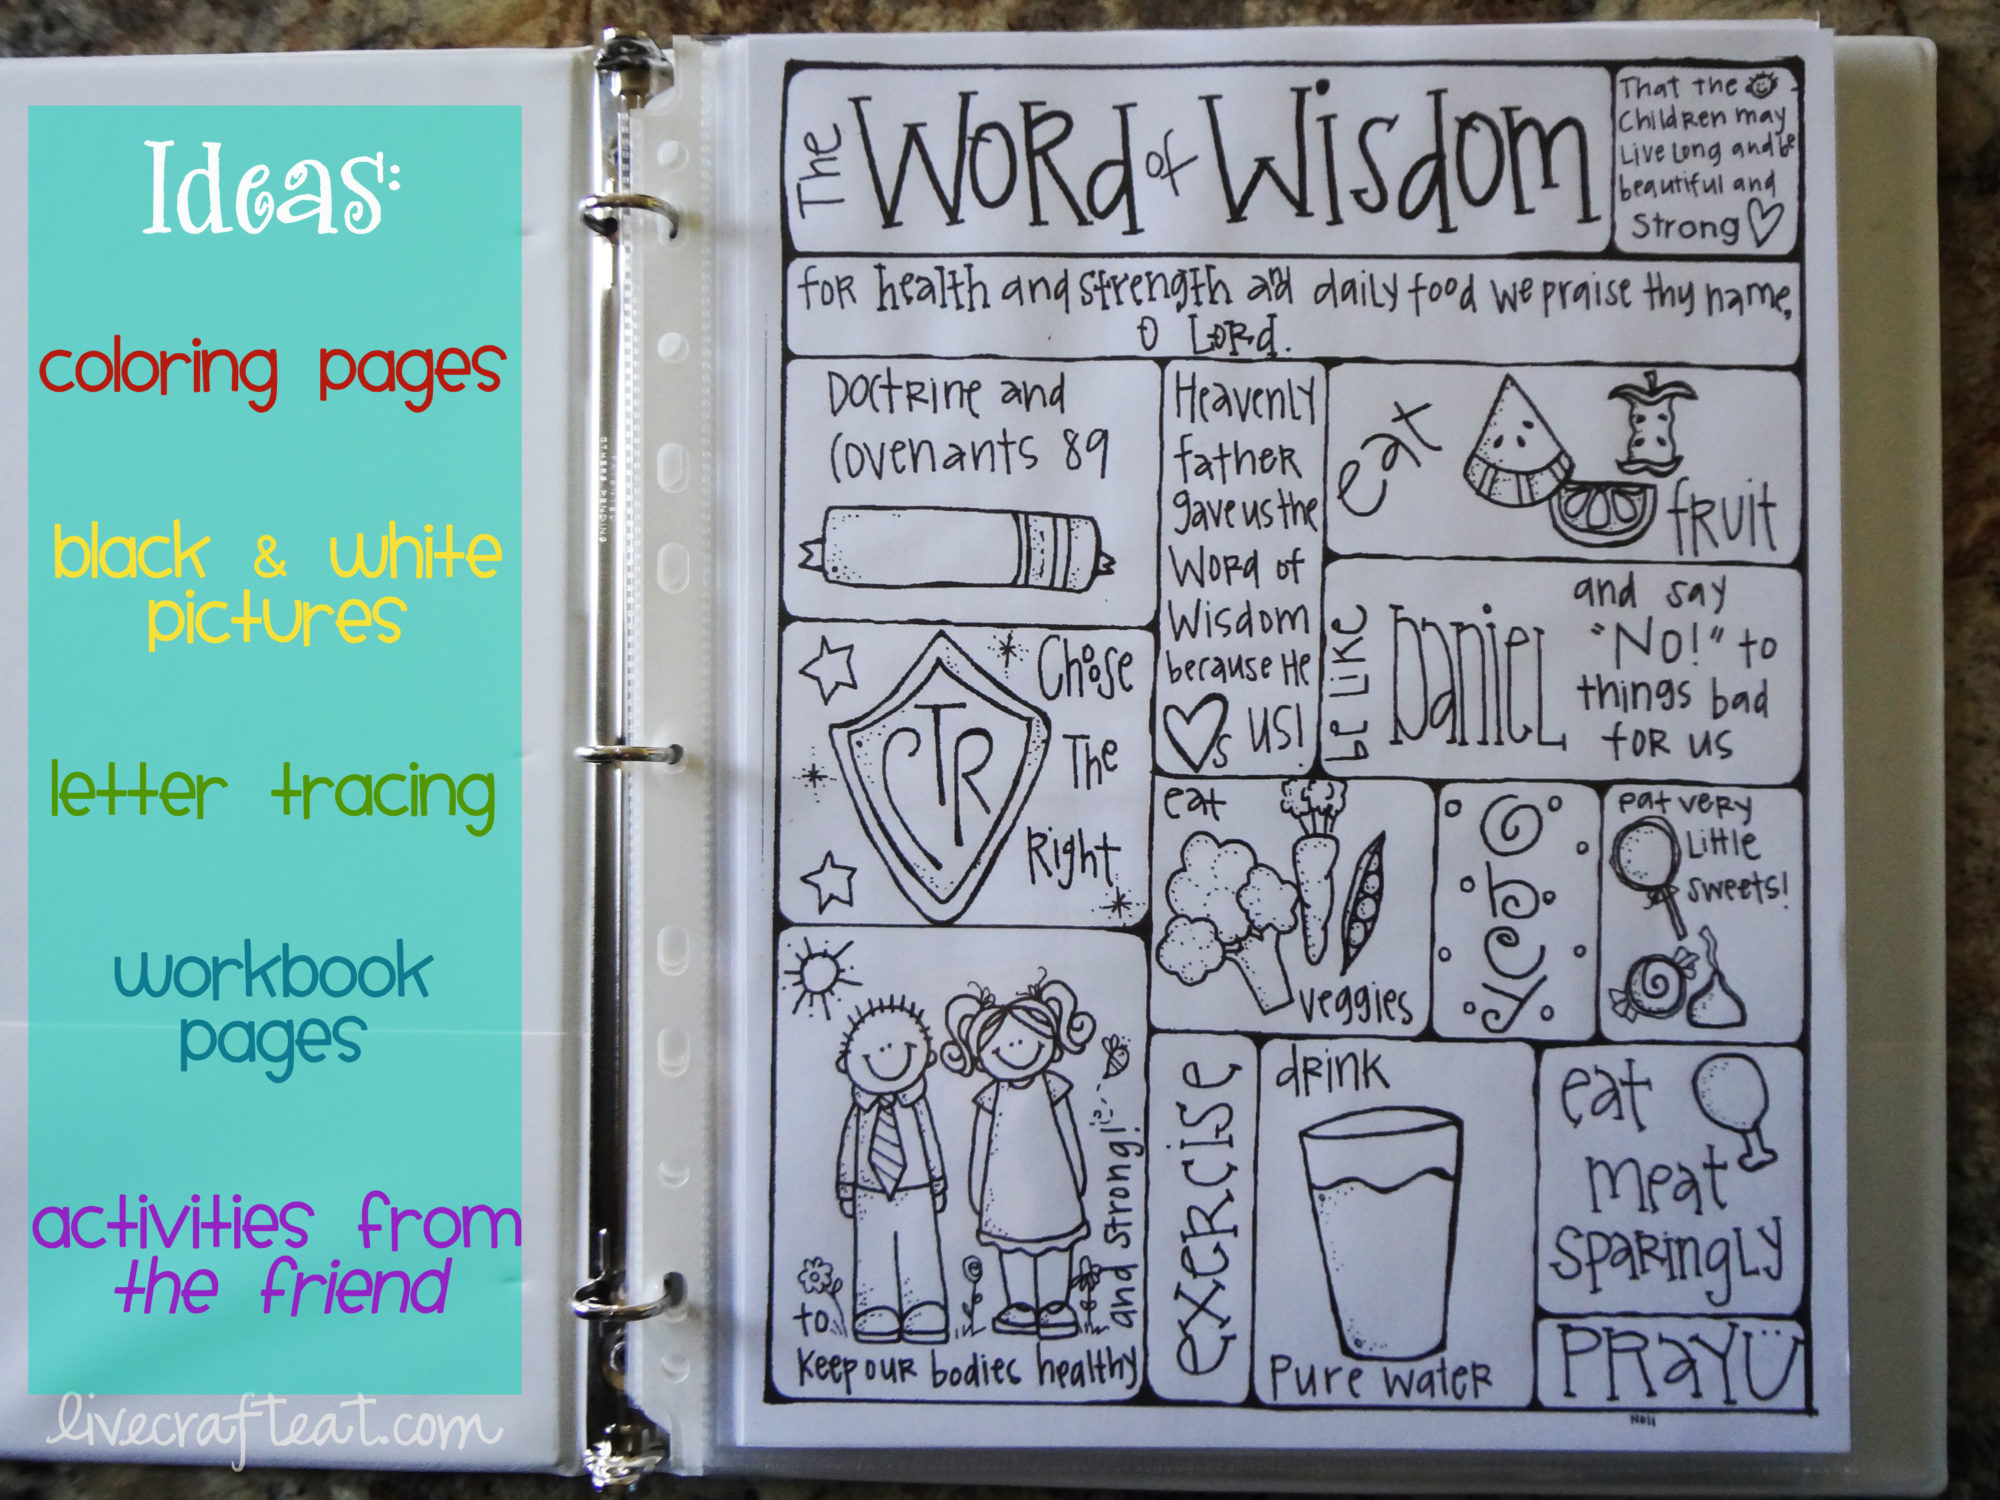 Ideas:
coloring pages
black & white
pictures
letter tracing
workbook
pages
activities from
the friend
livecrafteat.com
The Word of Wisdom
That the
Children may
Live Long and be
beautiful and
Strong
for health and strength and daily food we praise thy name,
O Lord.
Doctrine and
Covenants 89
Heavenly
father
gave us the
Word of
Wisdom
because He
s us!
eat
fruit
be like
Daniel
and say
"No!" to
things bad
for us
Choose
The
Right
CTR
eat
veggies
yoga
eat very
Little
sweets!
to
keep our bodies healthy
and strong!
exercise
drink
pure water
eat
meat
sparingly
Pray